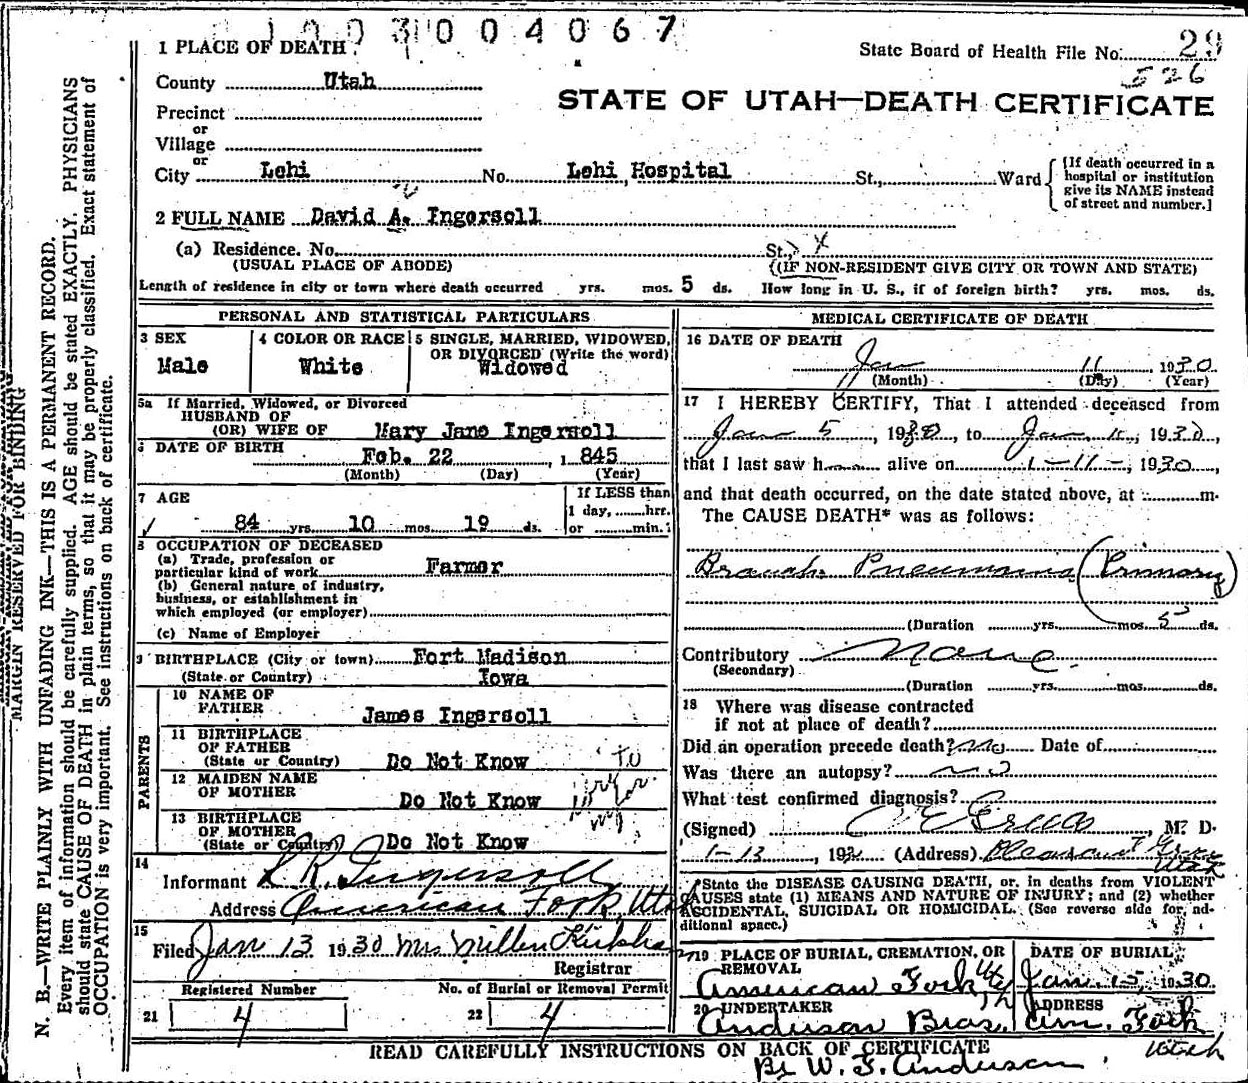 1003004067
State Board of Health File No. 29
526
STATE OF UTAH—DEATH CERTIFICATE
1 PLACE OF DEATH
County Utah
Precinct
or
Village
or
City Lehi No. Lehi Hospital St., Ward
{If death occurred in a hospital or institution give its NAME instead of street and number.]
2 FULL NAME David A. Ingersoll
(a) Residence. No. St., X
(USUAL PLACE OF ABODE) (IF NON-RESIDENT GIVE CITY OR TOWN AND STATE)
Length of residence in city or town where death occurred yrs. mos. 5 ds. How long in U. S., if of foreign birth? yrs. mos. ds.
PERSONAL AND STATISTICAL PARTICULARS
3 SEX
Male
4 COLOR OR RACE
White
5 SINGLE, MARRIED, WIDOWED,
OR DIVORCED (Write the word)
Widowed
5a If Married, Widowed, or Divorced
HUSBAND OF
(OR) WIFE OF Mary Jane Ingersoll
6 DATE OF BIRTH
Feb. 22, 1845
(Month) (Day) (Year)
7 AGE
84 yrs. 10 mos. 19 ds.
If LESS than
1 day, hrs.
or min.
8 OCCUPATION OF DECEASED
(a) Trade, profession or
particular kind of work Farmer
(b) General nature of industry,
business, or establishment in
which employed (or employer)
(c) Name of Employer
9 BIRTHPLACE (City or town) Fort Madison
(State or Country) Iowa
PARENTS
10 NAME OF
FATHER James Ingersoll
11 BIRTHPLACE
OF FATHER
(State or Country) Do Not Know
12 MAIDEN NAME
OF MOTHER Do Not Know
13 BIRTHPLACE
OF MOTHER
(State or Country) Do Not Know
14
Informant R. Ingersoll
Address American Fork, Utah
15
Filed Jan 13 1930 Mrs Kirkham
Registrar
Registered Number
21 4
No. of Burial or Removal Permit
22 4
MEDICAL CERTIFICATE OF DEATH
16 DATE OF DEATH
Jan 11 1930
(Month) (Day) (Year)
17 I HEREBY CERTIFY, That I attended deceased from
Jan 5, 1930, to Jan. 11, 1930,
that I last saw h alive on 1-11-, 1930,
and that death occurred, on the date stated above, at m.
The CAUSE DEATH* was as follows:
Pneumonia (Primary)
(Duration yrs. mos. 5 ds.
Contributory None
(Secondary)
(Duration yrs. mos. ds.
18 Where was disease contracted
if not at place of death?
Did an operation precede death? no Date of
Was there an autopsy? no
What test confirmed diagnosis?
(Signed) M. D.
1-13, 193 (Address) Pleasant Grove
Utah
*State the DISEASE CAUSING DEATH, or, in deaths from VIOLENT
CAUSES state (1) MEANS AND NATURE OF INJURY; and (2) whether
ACCIDENTAL, SUICIDAL OR HOMICIDAL. (See reverse side for ad-
ditional space.)
19 PLACE OF BURIAL, CREMATION, OR
REMOVAL
American Fork
DATE OF BURIAL
Jan. 15, 1930.
20 UNDERTAKER
Anderson Bros.
ADDRESS
Am. Fork
Utah
READ CAREFULLY INSTRUCTIONS ON BACK OF CERTIFICATE
By W. F. Anderson
MARGIN RESERVED FOR BINDING
N. B.—WRITE PLAINLY WITH UNFADING INK—THIS IS A PERMANENT RECORD.
Every item of information should be carefully supplied. AGE should be stated EXACTLY. PHYSICIANS
should state CAUSE OF DEATH in plain terms, so that it may be properly classified. Exact statement of
OCCUPATION is very important. See instructions on back of certificate.